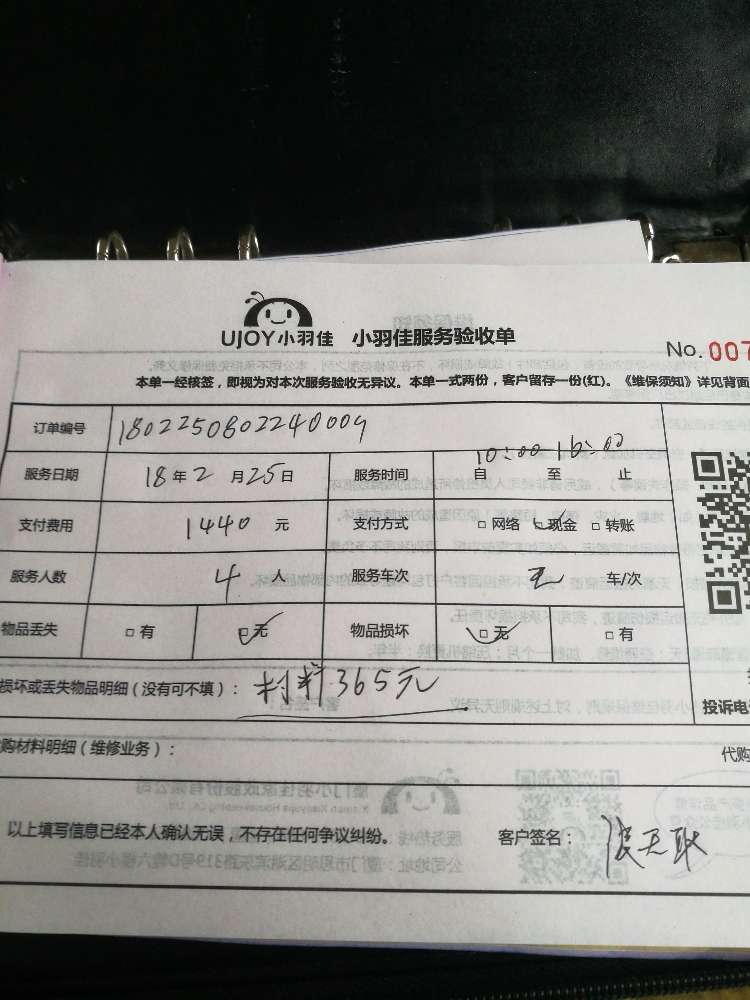 UJOY小羽佳 小羽佳服务验收单
No. 007
本单一经核签，即视为对本次服务验收无异议。本单一式两份，客户留存一份(红)。《维保须知》详见背面
订单编号 1802250802240009
服务日期 18年2月25日 服务时间 10:00 16:00 自 至 止
支付费用 1440元 支付方式 □网络 □现金 □转账
服务人数 4人 服务车次 无 车/次
物品丢失 □有 □无 物品损坏 □无 □有
损坏或丢失物品明细（没有可不填）： 材料365元
投诉电
购材料明细（维修业务）： 代购
以上填写信息已经本人确认无误，不存在任何争议纠纷。 客户签名：